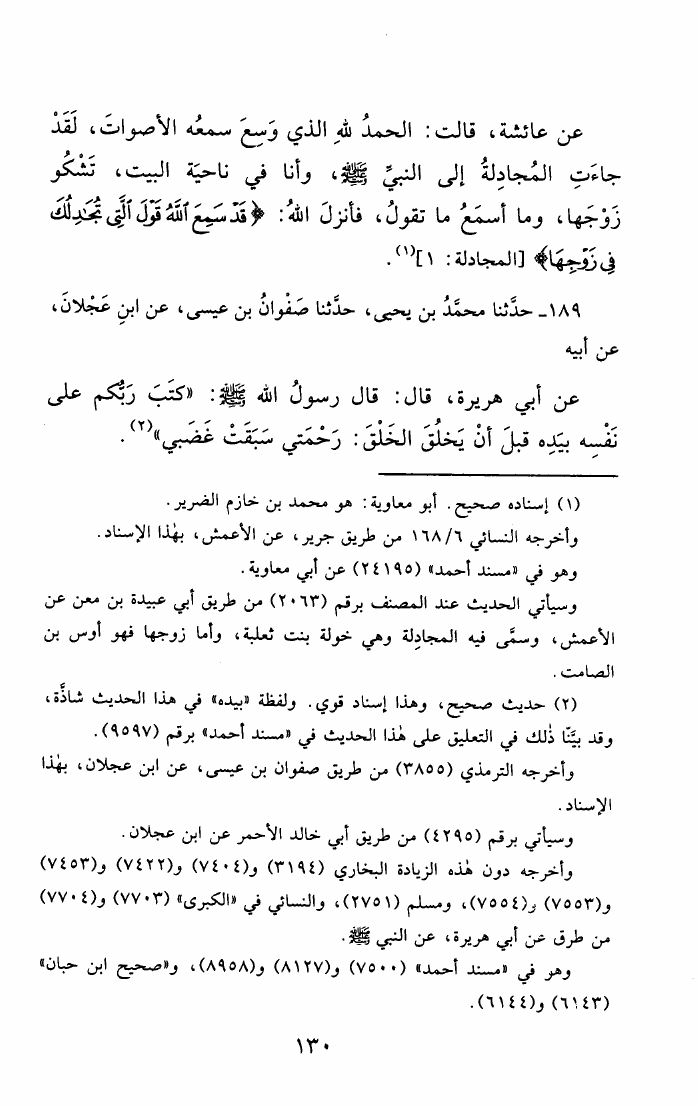 عن عائشة، قالت: الحمدُ للهِ الذي وَسِعَ سمعُه الأصواتَ، لَقَدْ
جاءَتِ المُجادِلةُ إلى النبيِّ ﷺ، وأنا في ناحيَة البيت، تَشْكُو
زَوْجَها، وما أسمَعُ ما تقولُ، فأنزلَ اللهُ: ﴿قَدْ سَمِعَ ٱللَّهُ قَوْلَ ٱلَّتِى تُجَٰدِلُكَ
فِى زَوْجِهَا﴾ [المجادلة: ١](١).
١٨٩ـ حدَّثنا محمَّدُ بن يحيى، حدَّثنا صَفْوانُ بن عيسى، عن ابنِ عَجْلانَ،
عن أبيه
عن أبي هريرة، قال: قال رسولُ الله ﷺ: «كَتَبَ رَبُّكم على
نَفْسِه بيَدِه قبلَ أنْ يَخلُقَ الخَلْقَ: رَحْمَتي سَبَقَتْ غَضَبي»(٢).
(١) إسناده صحيح. أبو معاوية: هو محمد بن خازم الضرير.
وأخرجه النسائي ١٦٨/٦ من طريق جرير، عن الأعمش، بهٰذا الإسناد.
وهو في «مسند أحمد» (٢٤١٩٥) عن أبي معاوية.
وسيأتي الحديث عند المصنف برقم (٢٠٦٣) من طريق أبي عبيدة بن معن عن
الأعمش، وسمَّى فيه المجادِلة وهي خولة بنت ثعلبة، وأما زوجها فهو أوس بن
الصامت.
(٢) حديث صحيح، وهذا إسناد قوي. ولفظة «بيده» في هذا الحديث شاذَّة،
وقد بيَّنّا ذٰلك في التعليق على هٰذا الحديث في «مسند أحمد» برقم (٩٥٩٧).
وأخرجه الترمذي (٣٨٥٥) من طريق صفوان بن عيسى، عن ابن عجلان، بهٰذا
الإسناد.
وسيأتي برقم (٤٢٩٥) من طريق أبي خالد الأحمر عن ابن عجلان.
وأخرجه دون هٰذه الزيادة البخاري (٣١٩٤) و(٧٤٠٤) و(٧٤٢٢) و(٧٤٥٣)
و(٧٥٥٣) و(٧٥٥٤)، ومسلم (٢٧٥١)، والنسائي في «الكبرى» (٧٧٠٣) و(٧٧٠٤)
من طرق عن أبي هريرة، عن النبي ﷺ.
وهو في «مسند أحمد» (٧٥٠٠) و(٨١٢٧) و(٨٩٥٨)، و«صحيح ابن حبان»
(٦١٤٣) و(٦١٤٤).
١٣٠